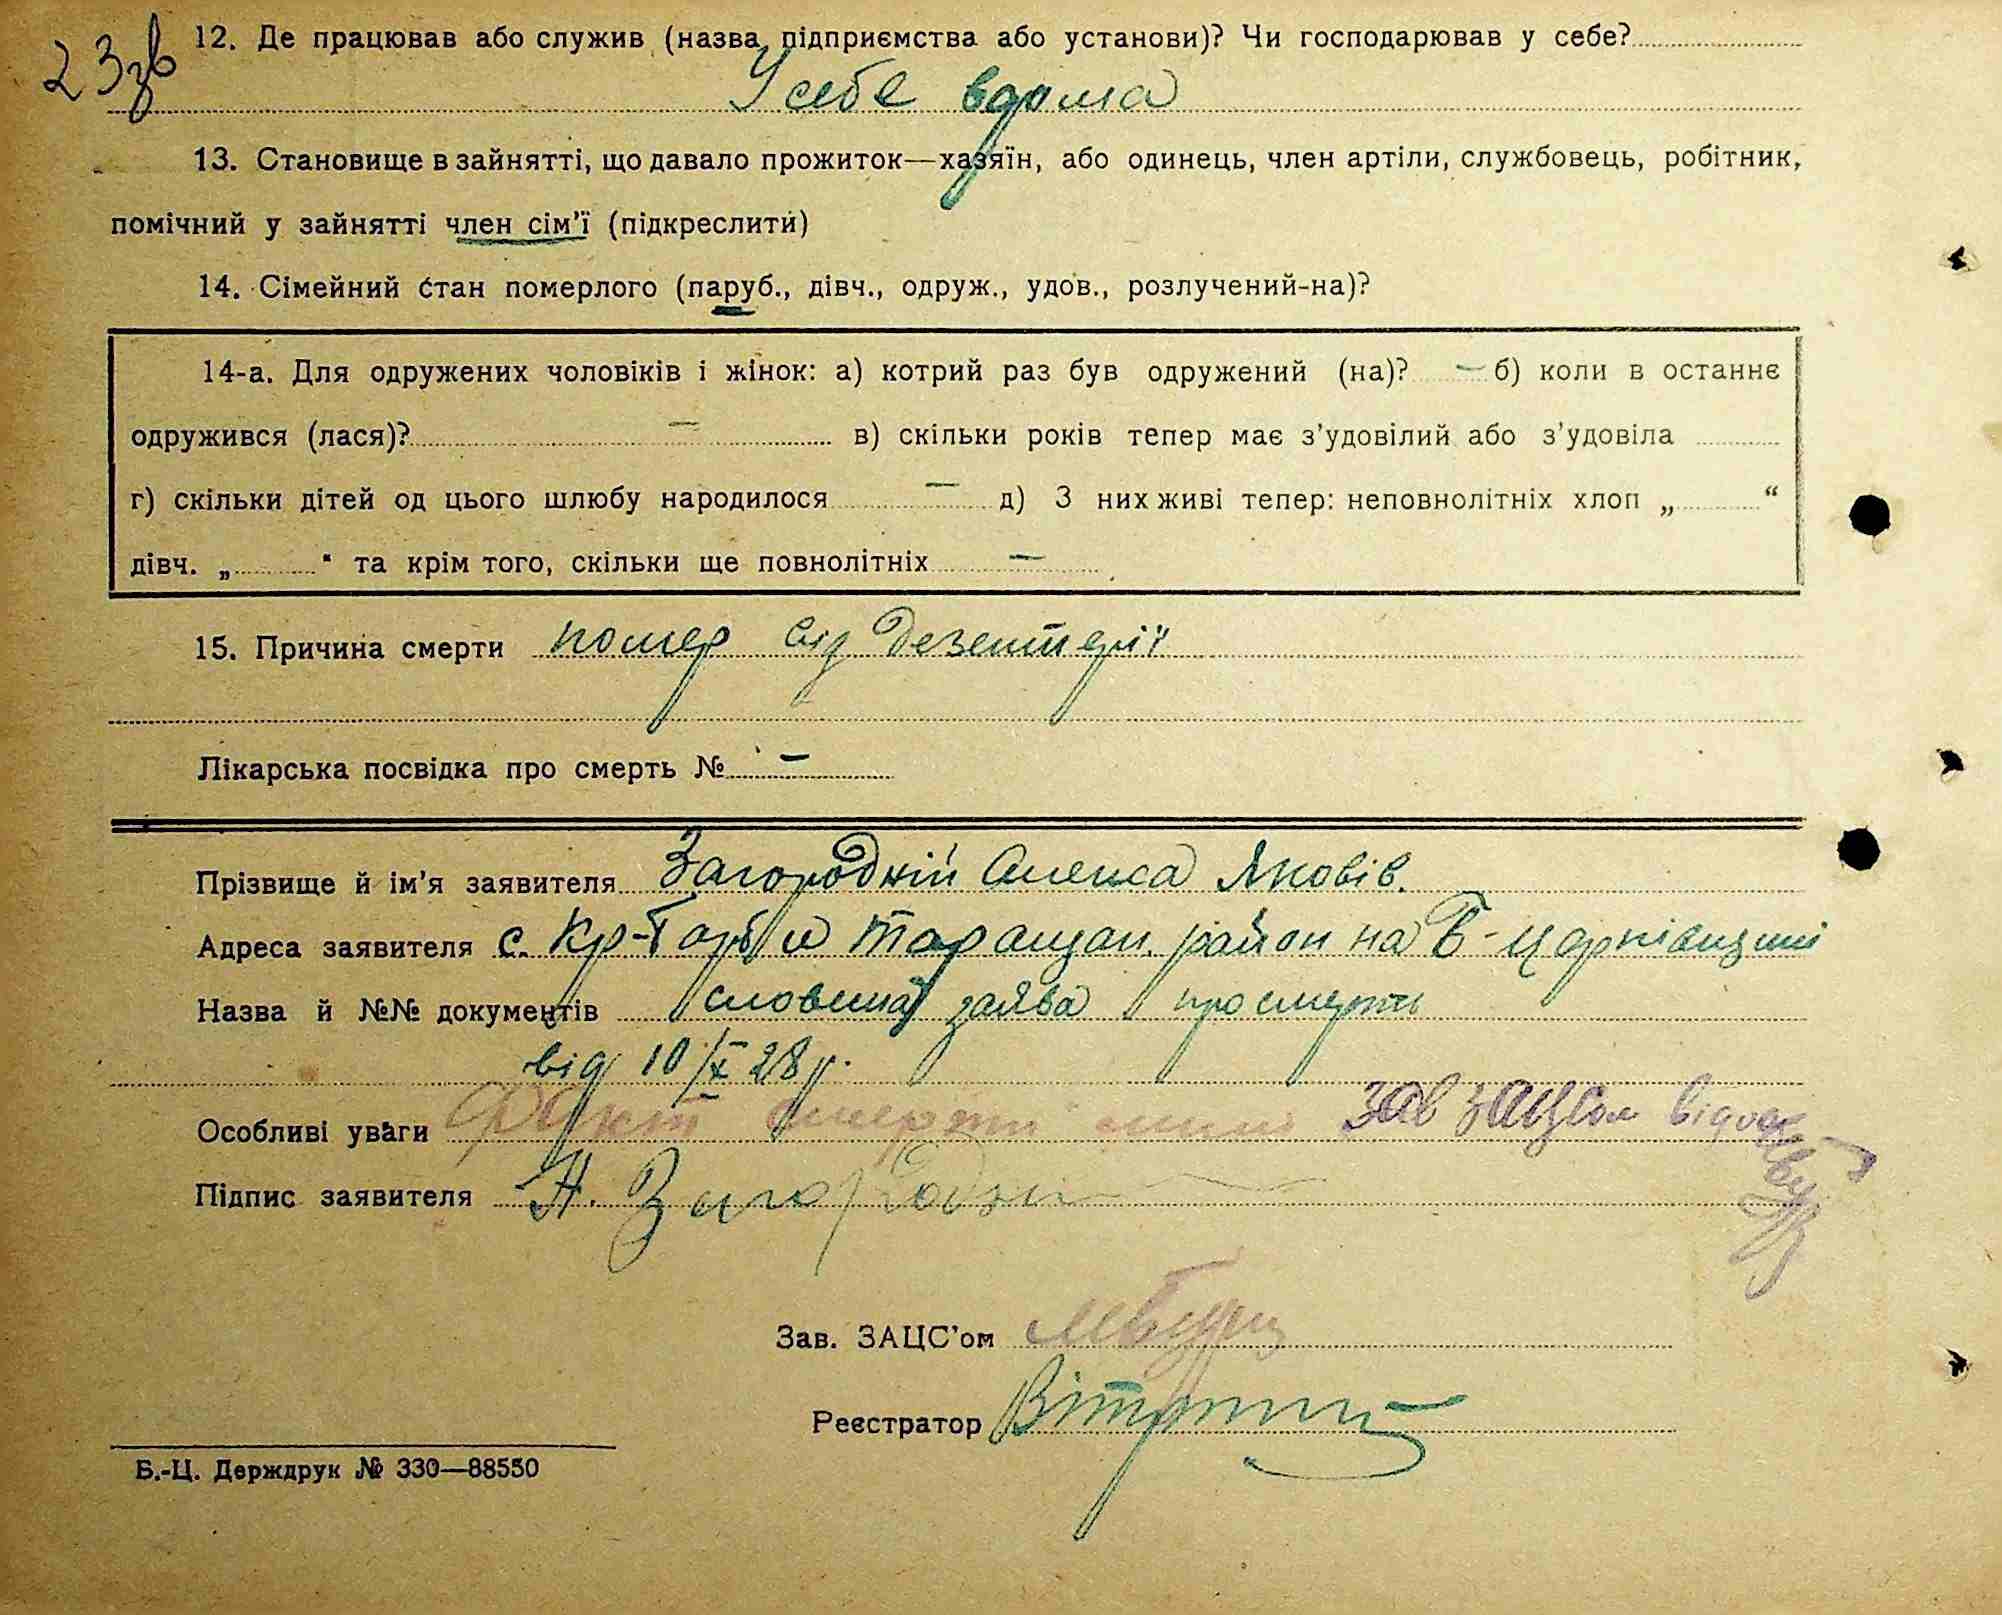 23зв
12. Де працював або служив (назва підприємства або установи)? Чи господарював у себе?
У себе вдома
13. Становище в зайнятті, що давало прожиток—хазяїн, або одинець, член артіли, службовець, робітник,
помічний у зайнятті член сім’ї (підкреслити)
14. Сімейний стан померлого (паруб., дівч., одруж., удов., розлучений-на)?
14-а. Для одружених чоловіків і жінок: а) котрий раз був одружений (на)? — б) коли в останнє
одружився (лася)? — в) скільки років тепер має з’удовілий або з’удовіла
г) скільки дітей од цього шлюбу народилося — д) З них живі тепер: неповнолітніх хлоп „ “
дівч. „ “ та крім того, скільки ще повнолітніх —
15. Причина смерти помер від дезентерії
Лікарська посвідка про смерть № —
Прізвище й ім’я заявителя Загородній Олекса Яковів.
Адреса заявителя с. Кр-Горби Таращан. район на Б-Церківщині
Назва й №№ документів словесна заява про смерть
від 10/X 28 р.
Особливі уваги Факт смерти зав ЗАЦСом
Підпис заявителя А. Загородні
Зав. ЗАЦС’ом
Реєстратор
Б.-Ц. Держдрук № 330—88550